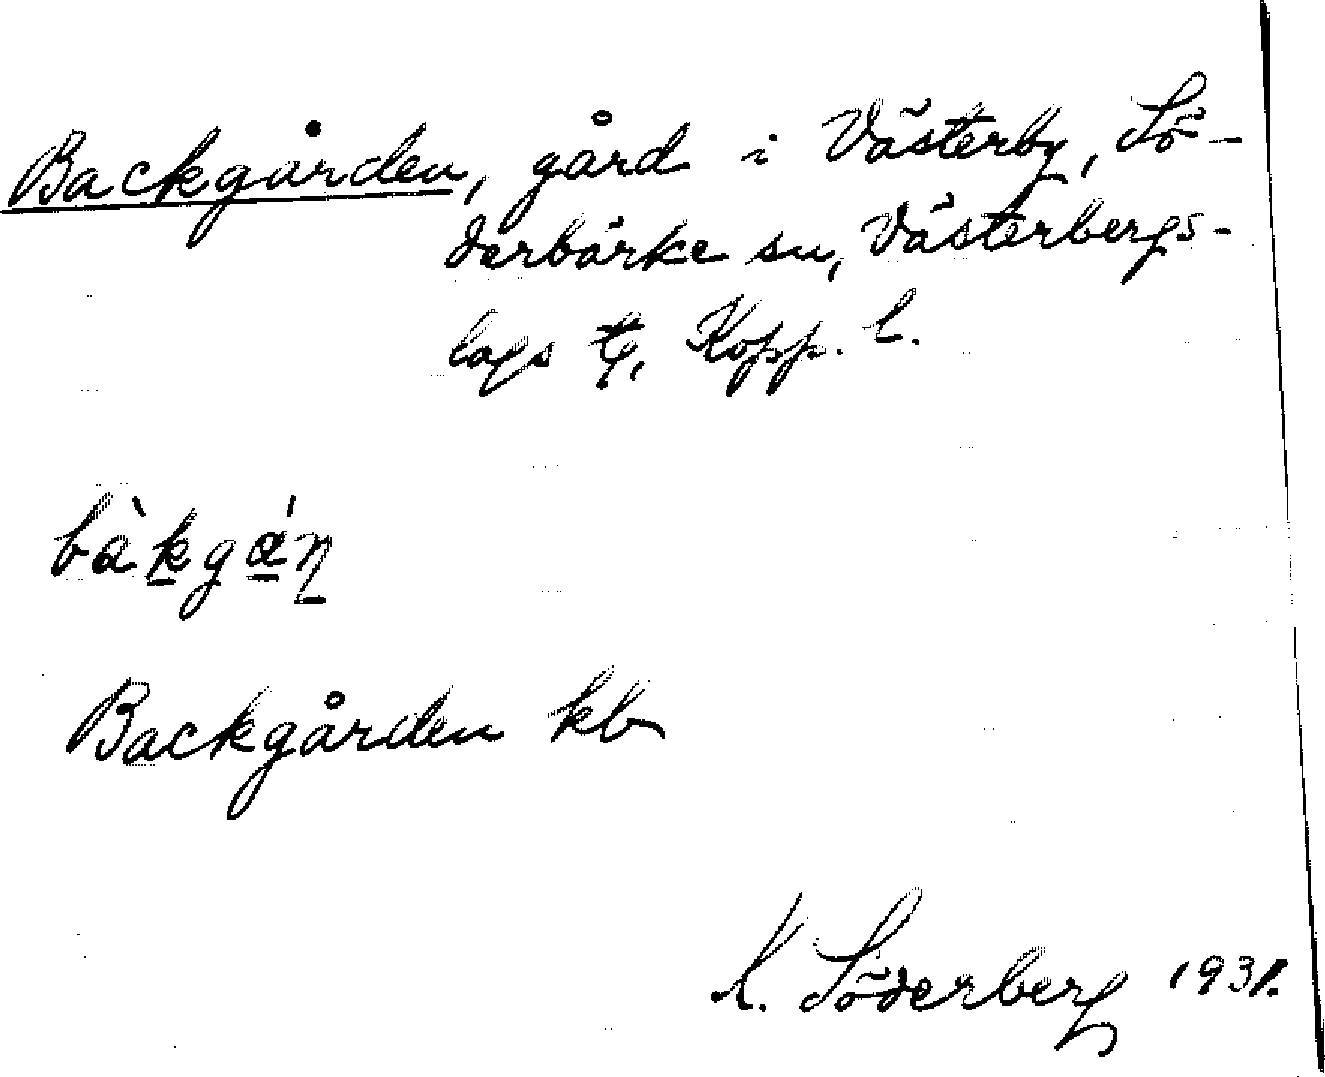 Backgården, gård i Västerby, Sö-
derbärke sn, Västerbergs-
lags tg, Kopp. l.
bàkgάṇ
Backgården kb
K. Söderberg 1931.